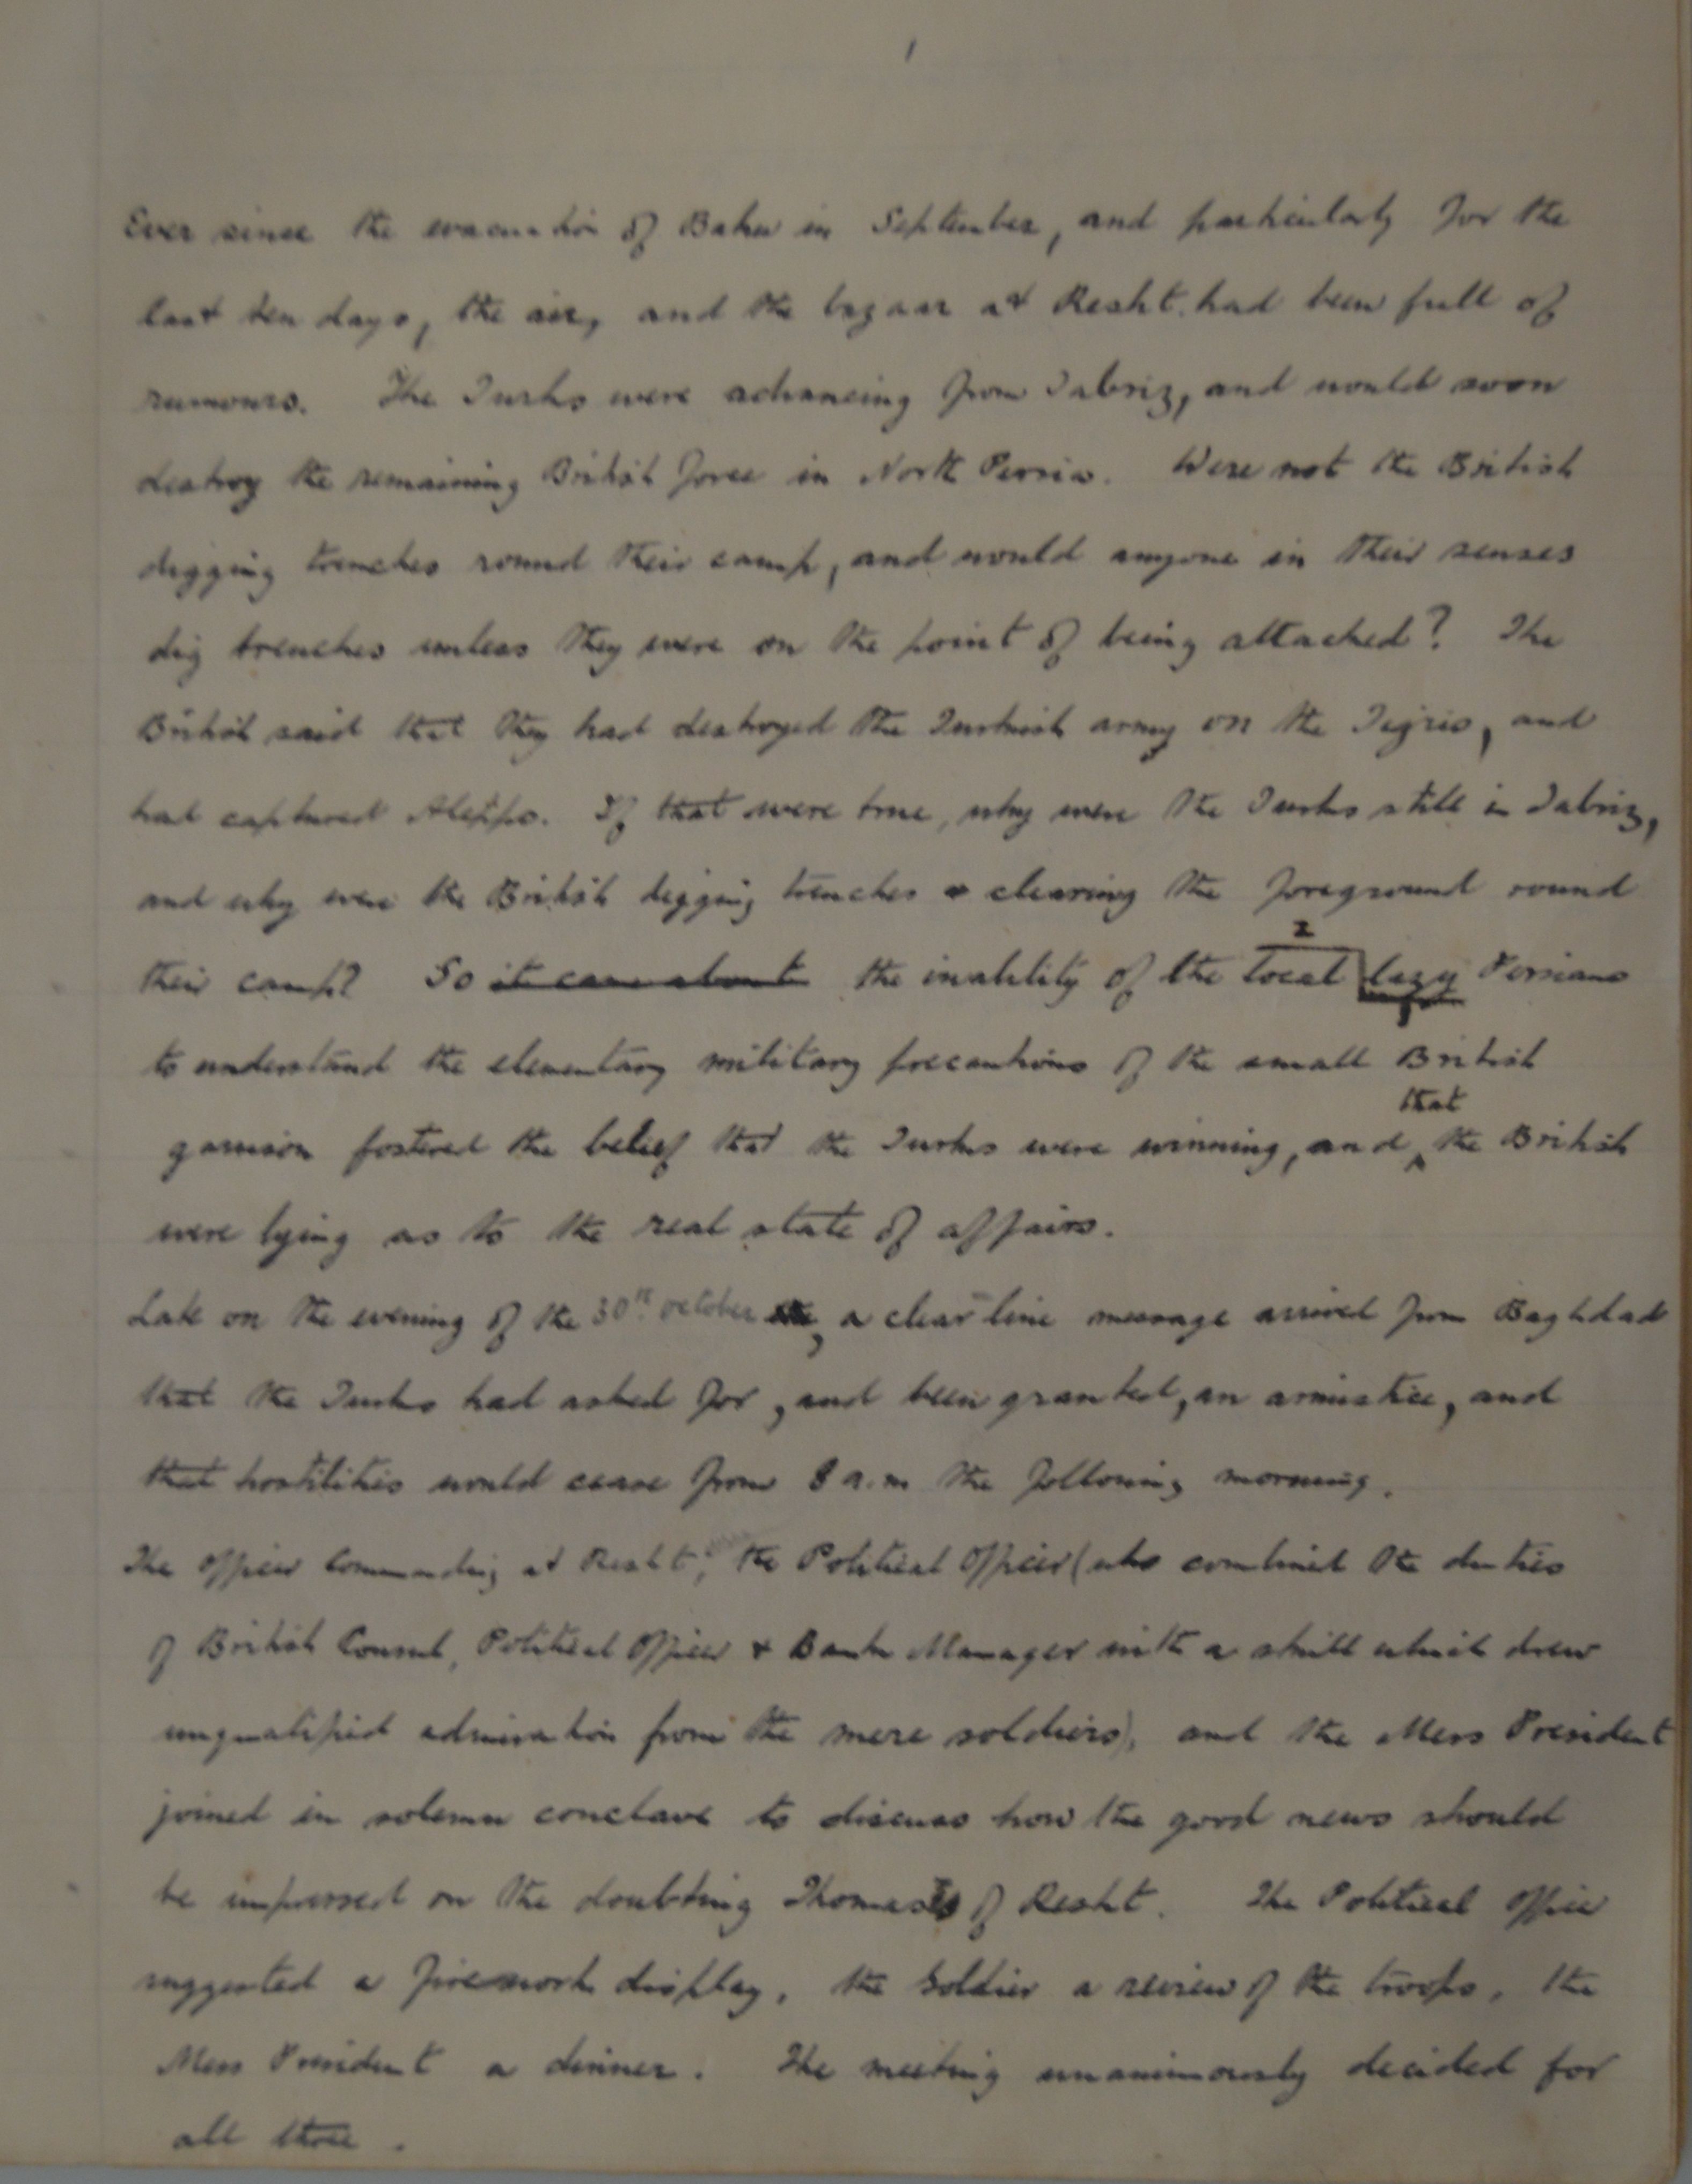 1
Ever since the evacuation of Baku in September, and particularly for the
last ten days, the air, and the bazaar at Resht had been full of
rumours. The Turks were advancing from Tabriz, and would soon
destroy the remaining British force in North Persia. Were not the British
digging trenches round their camp, and would anyone in their senses
dig trenches unless they were on the point of being attacked? The
British said that they had destroyed the Turkish army on the Tigris, and
had captured Aleppo. If that were true, why were the Turks still in Tabriz,
and why were the British digging trenches & clearing the foreground round
their camp? So it came about the inability of the local lazy Persians
to understand the elementary military precautions of the small British
that
garrison fostered the belief that the Turks were winning, and the British
were lying as to the real state of affairs.
Late on the evening of the 30th October, a clear line message arrived from Baghdad
that the Turks had asked for, and been granted, an armistice, and
that hostilities would cease from 8 a.m the following morning.
The Officer Commanding at Resht, the Political Officer (who combined the duties
of British Consul, Political Officer & Bank Manager with a skill which drew
unqualified admiration from the mere soldiers), and the Mess President
joined in solemn conclave to discuss how the good news should
be impressed on the doubting Thomases of Resht. The Political Officer
suggested a firework display, the Soldier a review of the troops, the
Mess President a dinner. The meeting unanimously decided for
all three.